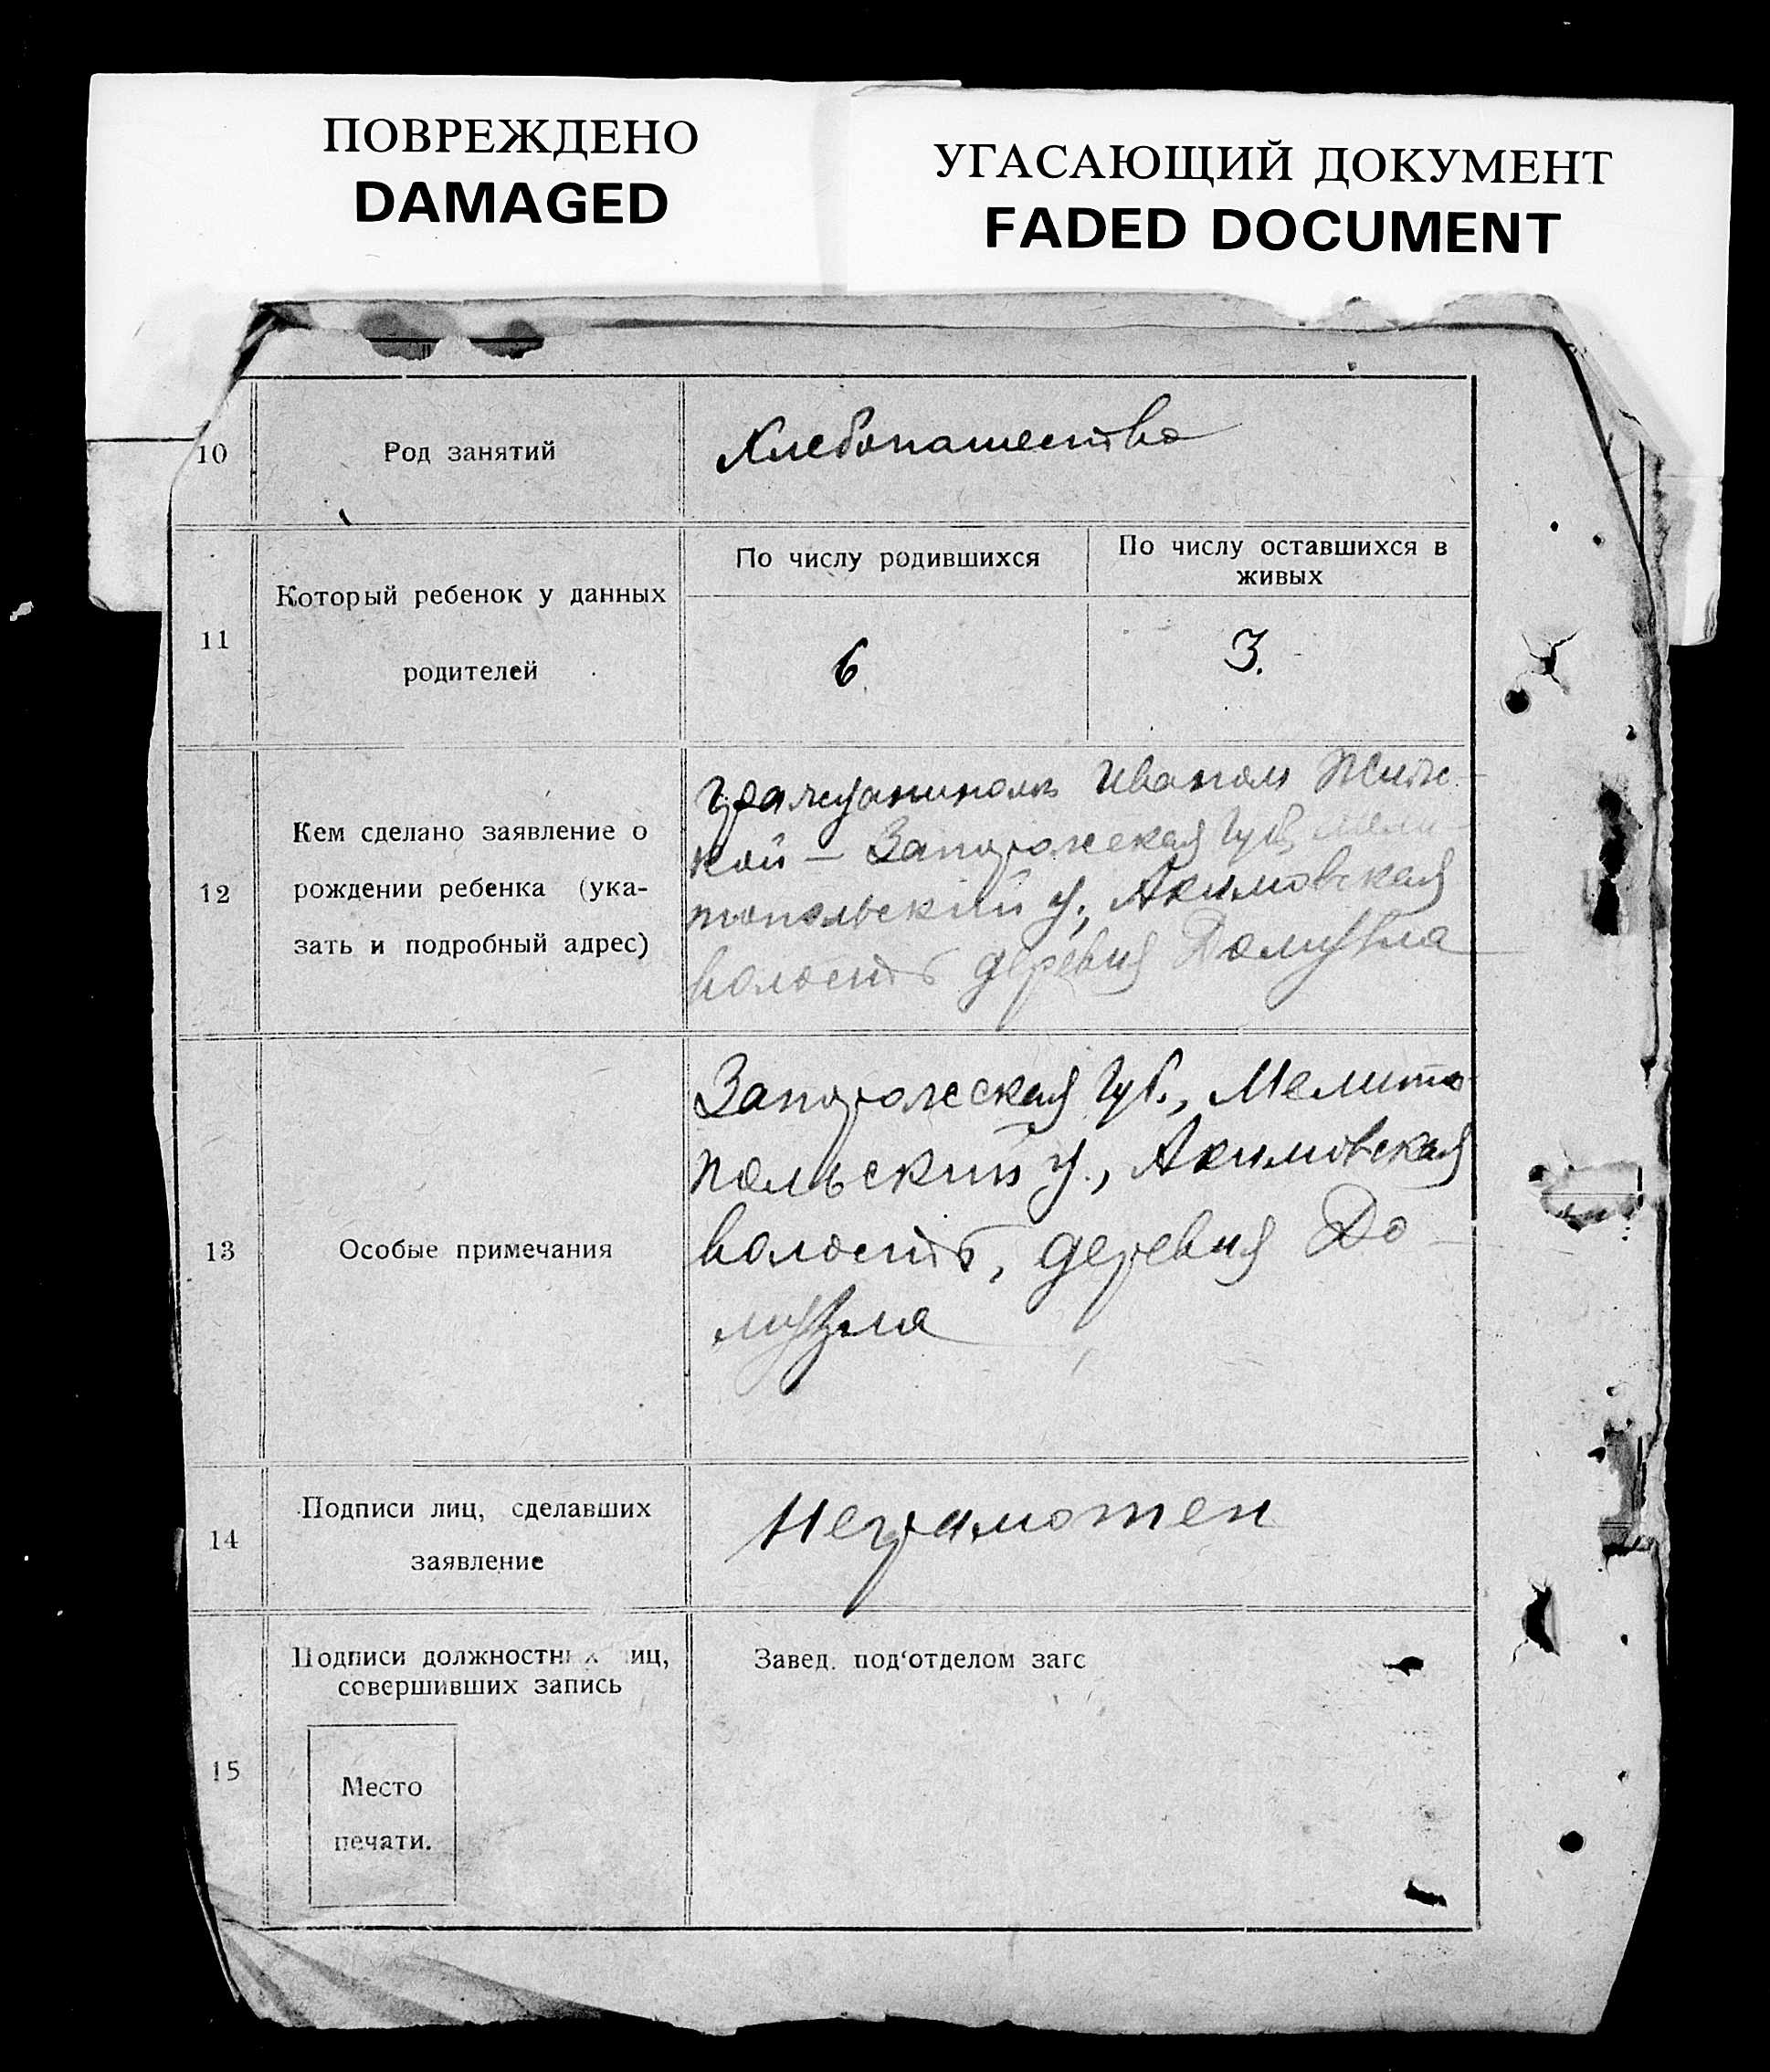 ПОВРЕЖДЕНО
DAMAGED
УГАСАЮЩИЙ ДОКУМЕНТ
FADED DOCUMENT
10
Род занятий
Хлебопашество
11
Который ребенок у данных
родителей
По числу родившихся
6
По числу оставшихся в
живых
3.
12
Кем сделано заявление о
рождении ребенка (ука-
зать и подробный адрес)
гражданином Иваном
кой — Запорожская губ, Мели-
топольский у., Акимовская
волость деревня Домузла
13
Особые примечания
Запорожская губ., Мелито-
польский у., Акимовская
волость, деревня До-
музла
14
Подписи лиц, сделавших
заявление
Неграмотен
15
Подписи должностных лиц,
совершивших запись
Место
печати.
Завед. под‘отделом загс